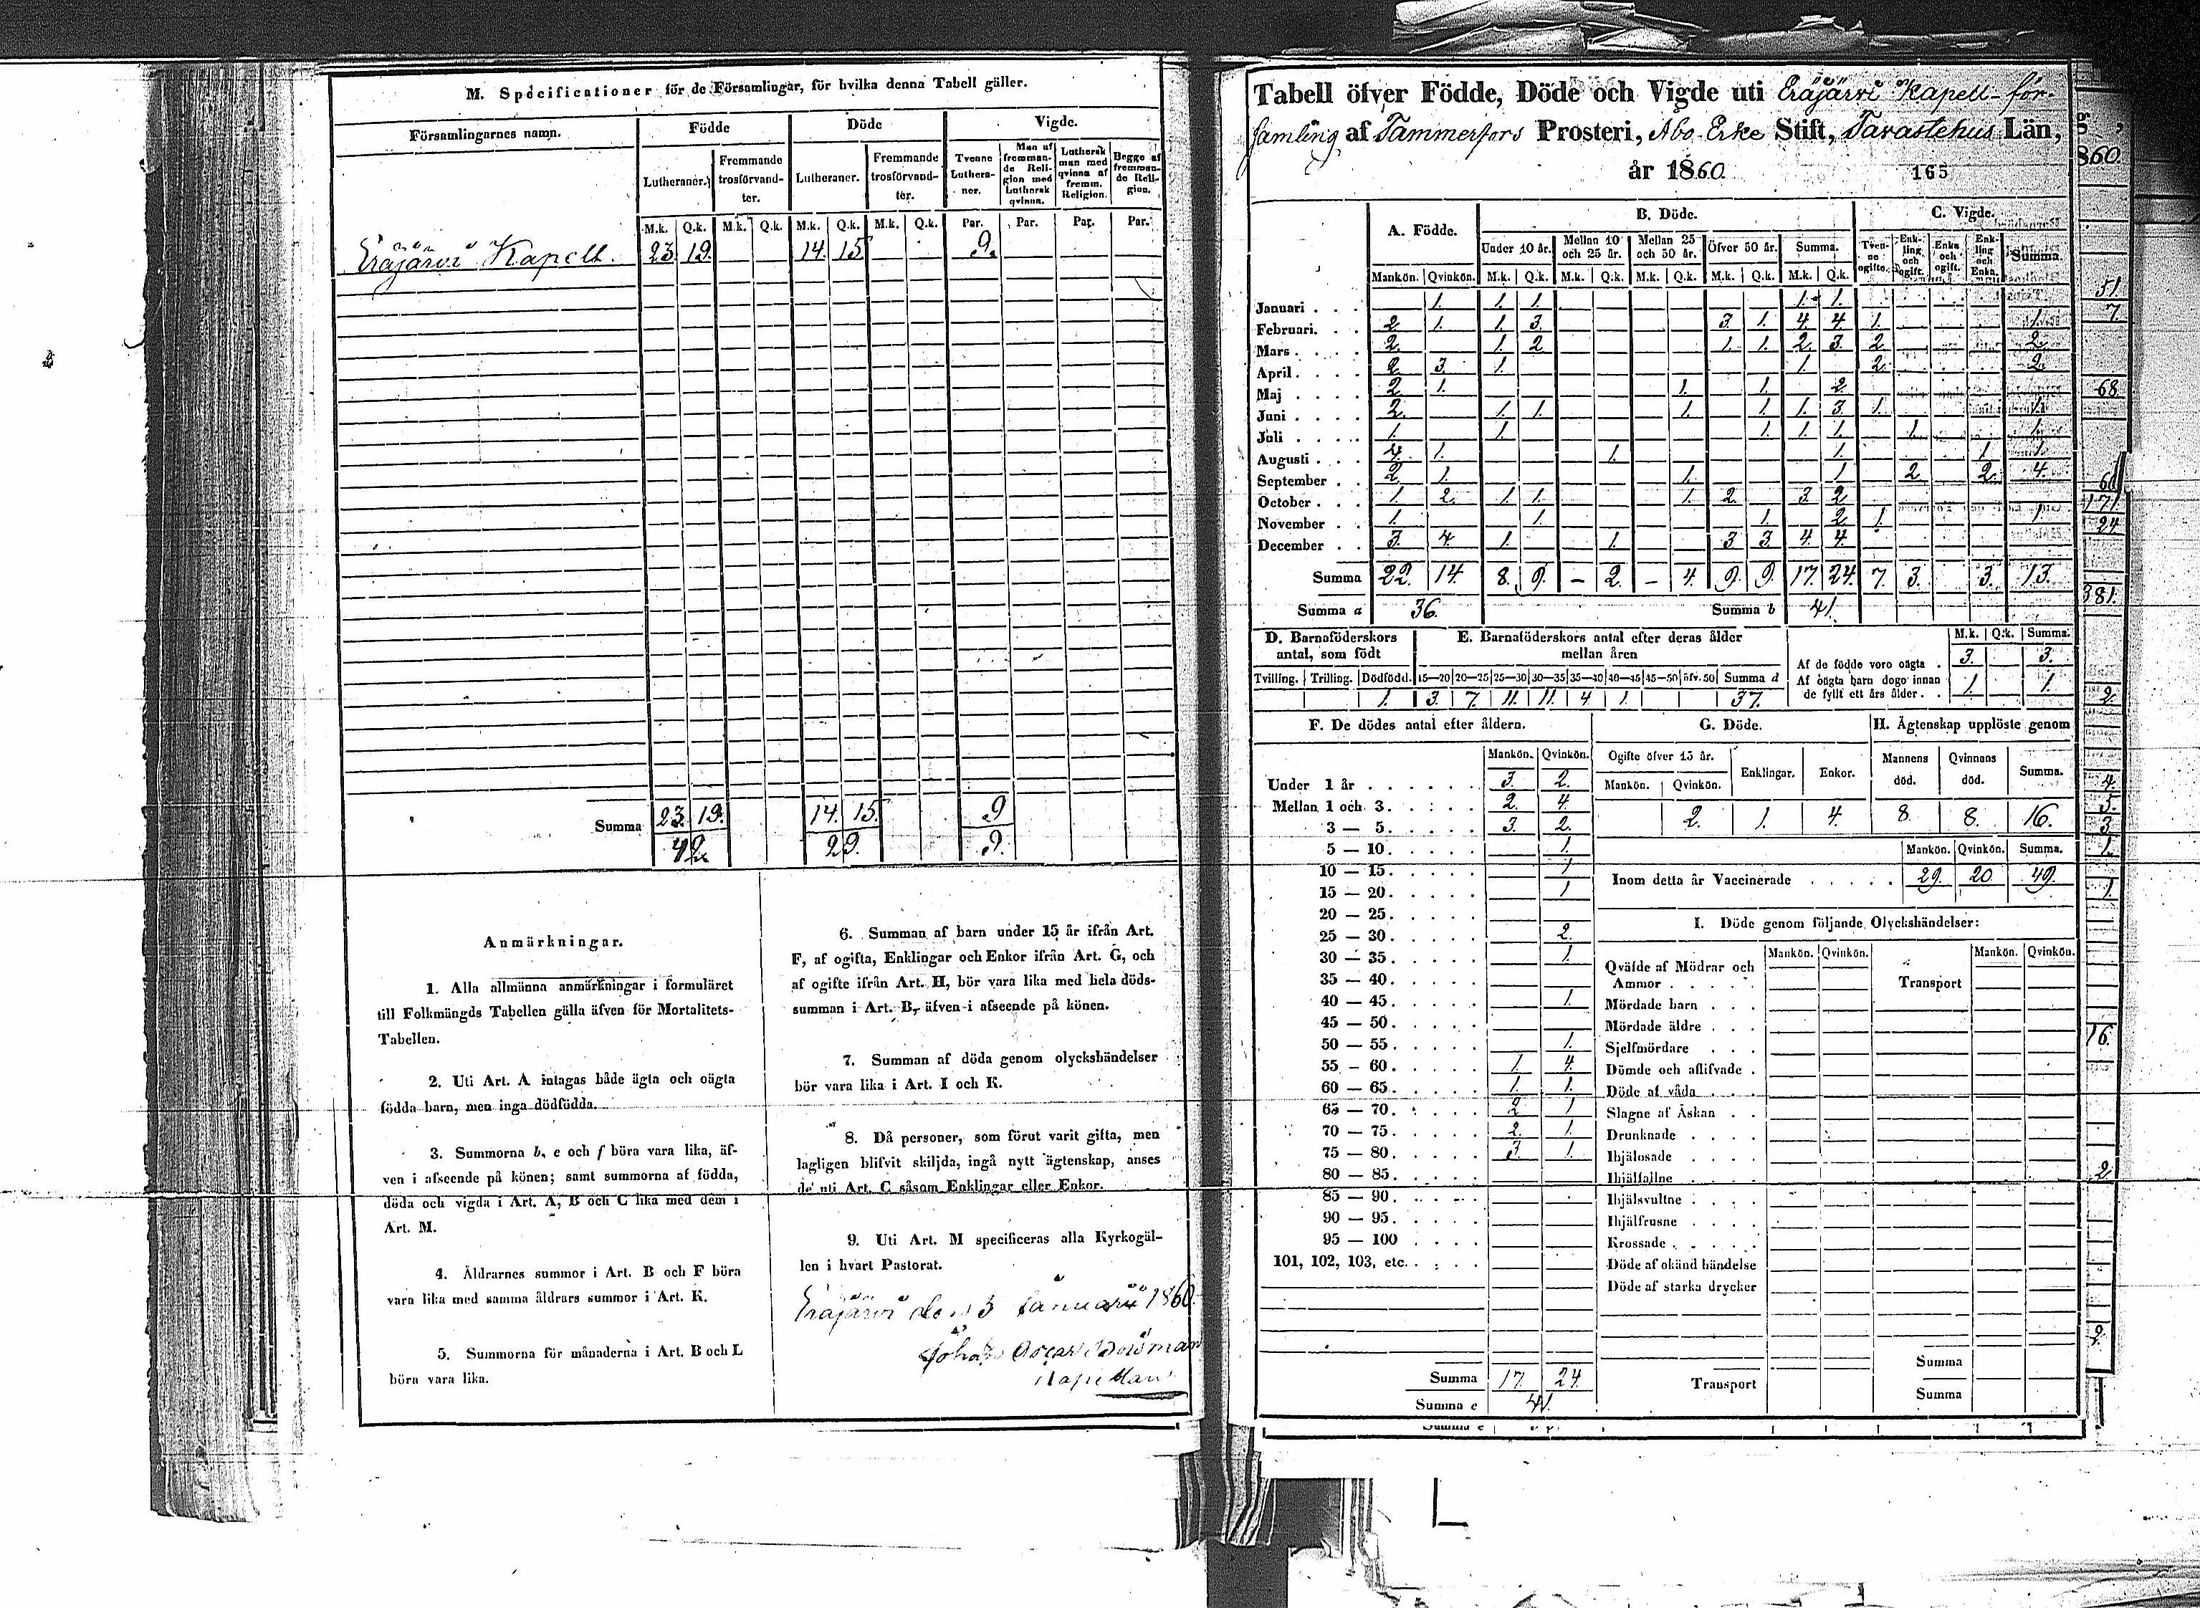 M. Specificationer för de Församlingar, för hvilka denna Tabell gäller.
Församlingarnes namn. Födde Döde Vigde.
Lutheraner. Fremmande trosförvandter. Lutheraner. Fremmande trosförvandter. Tvenne Lutheraner. Man af fremmande Religion med Luthersk qvinna. Luthersk man med qvinna af fremm. Religion. Begge af fremmande Religion.
M.k. Q.k. M.k. Q.k. M.k. Q.k. M.k. Q.k. Par. Par. Par. Par.
Eräjärvi Kapell. 23. 19. 14. 15 9.
Summa 23. 19. 14. 15. 9
42. 29. 9.
Anmärkningar.
1. Alla allmänna anmärkningar i formuläret
till Folkmängds Tabellen gälla äfven för Mortalitets-
Tabellen.
2. Uti Art. A intagas både ägta och oägta
födda barn, men inga dödfödda.
3. Summorna b, e och f böra vara lika, äf-
ven i afseende på könen; samt summorna af födda,
döda och vigda i Art. A, B och C lika med dem i
Art. M.
4. Åldrarnes summor i Art. B och F böra
vara lika med samma åldrars summor i Art. K.
5. Summorna för månaderna i Art. B och L
böra vara lika.
6. Summan af barn under 15 år ifrån Art.
F, af ogifta, Enklingar och Enkor ifrån Art. G, och
af ogifte ifrån Art. H, bör vara lika med hela döds-
summan i Art. B, äfven i afseende på könen.
7. Summan af döda genom olyckshändelser
bör vara lika i Art. I och K.
8. Då personer, som förut varit gifta, men
lagligen blifvit skiljda, ingå nytt ägtenskap, anses
de uti Art. C såsom Enklingar eller Enkor.
9. Uti Art. M specificeras alla Kyrkogäl-
len i hvart Pastorat.
Eräjärvi den 3 Januari 1860.
Johan Oscar
Kapellan
Tabell öfver Födde, Döde och Vigde uti Eräjärvi Kapell-för-
samling af Tammerfors Prosteri, Åbo Erke Stift, Tavastehus Län,
år 1860. 165
A. Födde. B. Döde. C. Vigde.
Under 10 år. Mellan 10 och 25 år. Mellan 25 och 50 år. Öfver 50 år. Summa. Tvenne ogifte. Enkling och ogift. Enka och ogift. Enkling och Enka. Summa.
Mankön. Qvinkön. M.k. Q.k. M.k. Q.k. M.k. Q.k. M.k. Q.k. M.k. Q.k.
Januari 1. 1. 1. 1. 1.
Februari. 2 1. 1. 3. 3. 1. 4. 4. 1. 1.
Mars 2. 1. 2 1. 1. 2. 3. 2. 2.
April 2 3. 1. 1. 2. 2.
Maj 2 1. 1. 1. 2.
Juni 2. 1. 1. 1. 1. 1. 3. 1. 1.
Juli 1. 1. 1. 1. 1. 1. 1.
Augusti 4. 1. 1. 1. 1. 1.
September 2. 1. 1. 1 2 2. 4.
October 1. 2. 1. 1. 1. 2. 3 2.
November 1. 1. 1. 2. 1. 1.
December 3. 4. 1. 1. 3. 3. 4. 4.
Summa 22. 14. 8. 9. – 2. – 4. 9. 9. 17. 24. 7. 3. 3. 13.
Summa a 36. Summa b 41.
D. Barnaföderskors antal, som födt
E. Barnaföderskors antal efter deras ålder mellan åren
M.k. Q.k. Summa.
Tvilling. Trilling. Dödfödd. 15—20 20—25 25—30 30—35 35—40 40—45 45—50 öfv. 50 Summa d
1. 3. 7. 11. 11. 4 1. 37.
Af de födde voro oägta 3. 3.
Af oägta barn dogo innan de fyllt ett års ålder 1. 1.
F. De dödes antal efter åldern.
Mankön. Qvinkön.
Under 1 år 3. 2.
Mellan 1 och 3. 2. 4
3 — 5. 3. 2.
5 — 10. 1.
10 — 15. 1
15 — 20. 1
20 — 25.
25 — 30. 2.
30 — 35. 1.
35 — 40.
40 — 45. 1.
45 — 50.
50 — 55. 1.
55 - 60. 1. 4.
60 — 65. 1. 1.
65 — 70. 2 1.
70 — 75. 2. 1.
75 — 80. 3. 1.
80 — 85.
85 — 90.
90 — 95.
95 — 100
101, 102, 103, etc.
Summa 17. 24.
Summa e 41.
G. Döde.
Ogifte öfver 15 år. Enklingar. Enkor.
Mankön. Qvinkön.
2. 1. 4.
H. Ägtenskap upplöste genom
Mannens död. Qvinnans död. Summa.
8. 8. 16.
Mankön. Qvinkön. Summa.
Inom detta år Vaccinerade 29. 20 49.
I. Döde genom följande Olyckshändelser:
Mankön. Qvinkön. Mankön. Qvinkön.
Qväfde af Mödrar och Ammor
Mördade barn
Mördade äldre
Sjelfmördare
Dömde och aflifvade
Döde af våda
Slagne af Åskan
Drunknade
Ihjälosade
Ihjälfallne
Ihjälsvultne
Ihjälfrusne
Krossade
Döde af okänd händelse
Döde af starka drycker
Transport
Transport
Summa
Summa
860.
51.
7.
68.
171.
24.
381.
2.
4.
5.
3.
1.
1.
16.
2.
2.